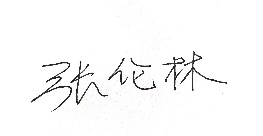 张伦林